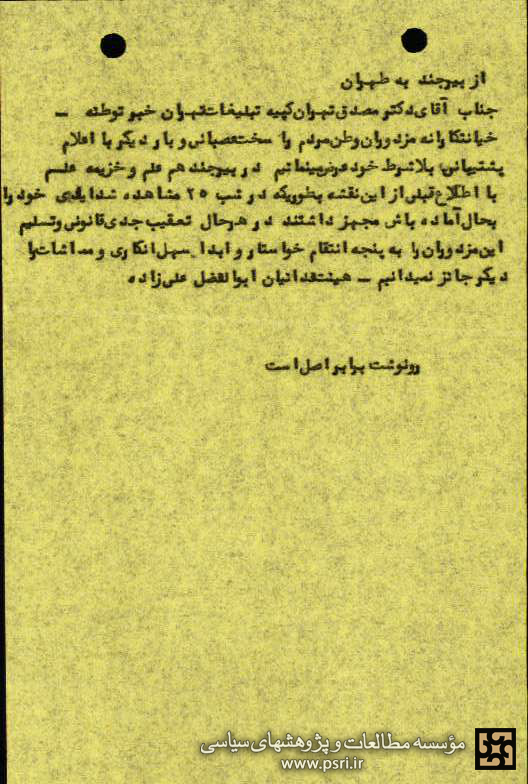 از بیرجند به طهران
جناب آقای دکتر مصدق تهران کپیه تبلیغات تهران خبر توطئه –
خیانتکارانه مزدوران وطن مردم را سخت عصبانی و بار دیگر با اعلام
پشتیبانی بلاشرط خود عرض مینمائیم در بیرجند هم علم و خزیمه علم
با اطلاع قبلی از این نقشه بطوریکه در شب ۲۵ مشاهده شد ایادی خود را
بحال آماده باش مجهز داشتند در هرحال تعقیب جدی قانونی و تسلیم
این مزدوران را به پنجه انتقام خواستار و ابدا سهل انکاری و مماشات را
دیگر جائز نمیدانیم – هیئت فدائیان ابوالفضل علی زاده
رونوشت برابر اصل است
مؤسسه مطالعات و پژوهشهای سیاسی
www.psri.ir